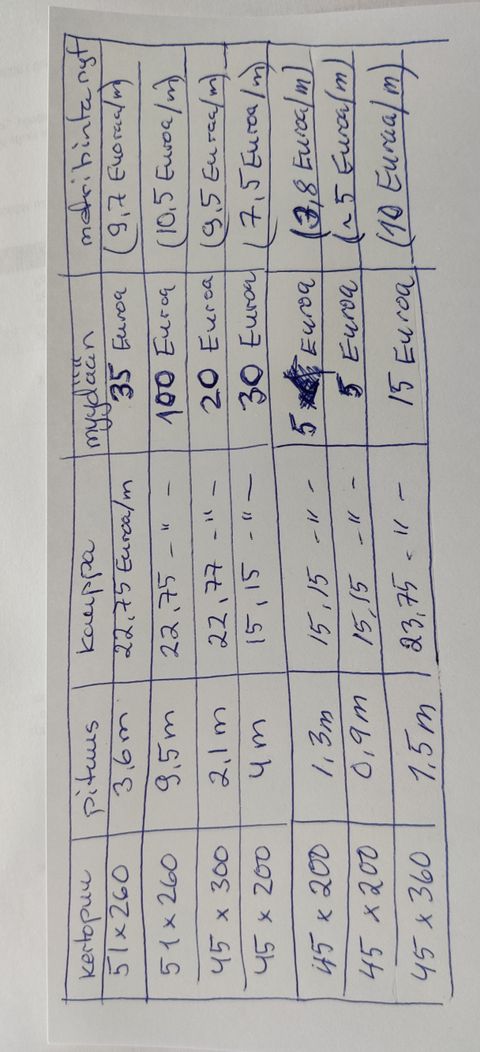 kertopuu pituus kauppa myydään metrihinta nyt
51 x 260 3,6m 22,75 Euroa/m 35 Euroa (9,7 Euroa/m)
51 x 260 9,5m 22,75 -"- 100 Euroa (10,5 Euroa/m)
45 x 300 2,1m 22,77 -"- 20 Euroa (9,5 Euroa/m)
45 x 200 4m 15,15 -"- 30 Euroa (7,5 Euroa/m)
45 x 200 1,3m 15,15 -"- 5 Euroa (3,8 Euroa/m)
45 x 200 0,9m 15,15 -"- 5 Euroa (~5 Euroa/m)
45 x 360 1,5m 23,75 -"- 15 Euroa (10 Euroa/m)